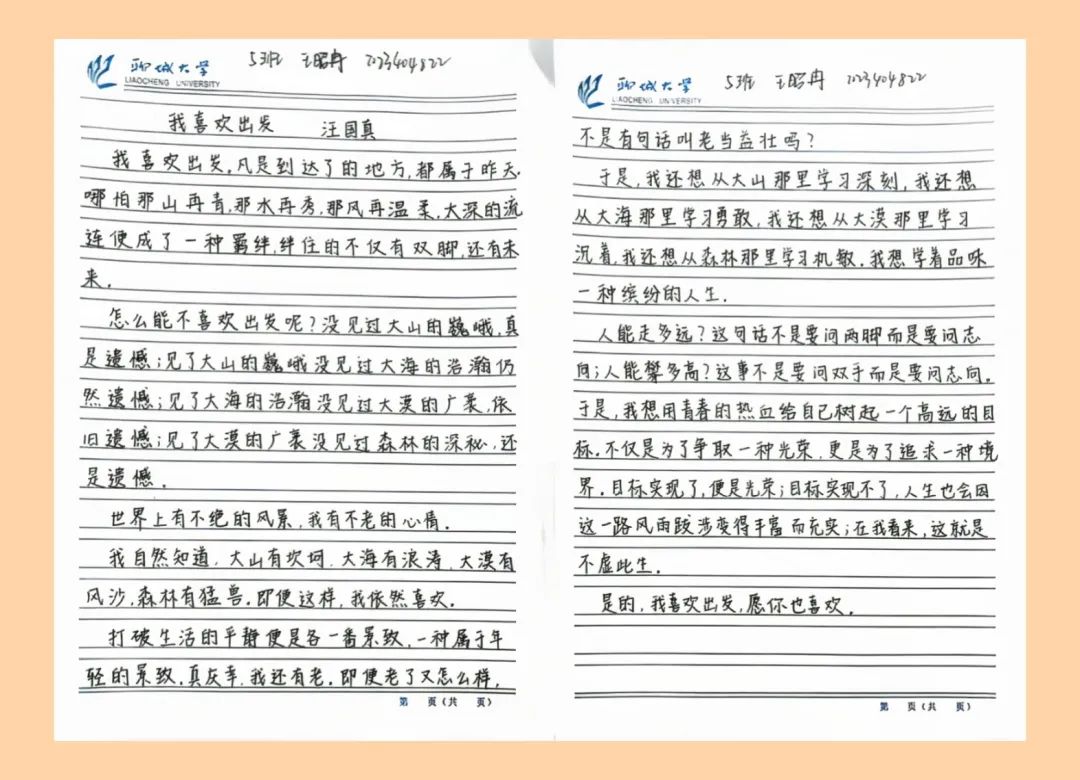 聊城大学
LIAOCHENG UNIVERSITY
5班 王昭冉 2023404822
我喜欢出发 汪国真
我喜欢出发,凡是到达了的地方,都属于昨天.
哪怕那山再青,那水再秀,那风再温柔,太深的流
连便成了一种羁绊,绊住的不仅有双脚,还有未
来.
怎么能不喜欢出发呢?没见过大山的巍峨,真
是遗憾;见了大山的巍峨没见过大海的浩瀚仍
然遗憾;见了大海的浩瀚没见过大漠的广袤,依
旧遗憾;见了大漠的广袤没见过森林的深秘,还
是遗憾.
世界上有不绝的风景,我有不老的心情.
我自然知道,大山有坎坷,大海有浪涛,大漠有
风沙,森林有猛兽.即便这样,我依然喜欢.
打破生活的平静便是各一番景致,一种属于年
轻的景致.真庆幸,我还有老.即便老了又怎么样,
第 页(共 页)
聊城大学
LIAOCHENG UNIVERSITY
5班 王昭冉 2023404822
不是有句话叫老当益壮吗?
于是,我还想从大山那里学习深刻,我还想
从大海那里学习勇敢,我还想从大漠那里学习
沉着,我还想从森林那里学习机敏.我想学着品味
一种缤纷的人生.
人能走多远?这句话不是要问两脚而是要问志
向;人能攀多高?这事不是要问双手而是要问志向.
于是,我想用青春的热血给自己树起一个高远的目
标.不仅是为了争取一种光荣,更是为了追求一种境
界.目标实现了,便是光荣;目标实现不了,人生也会因
这一路风雨跋涉变得丰富而充实;在我看来,这就是
不虚此生.
是的,我喜欢出发,愿你也喜欢.
第 页(共 页)